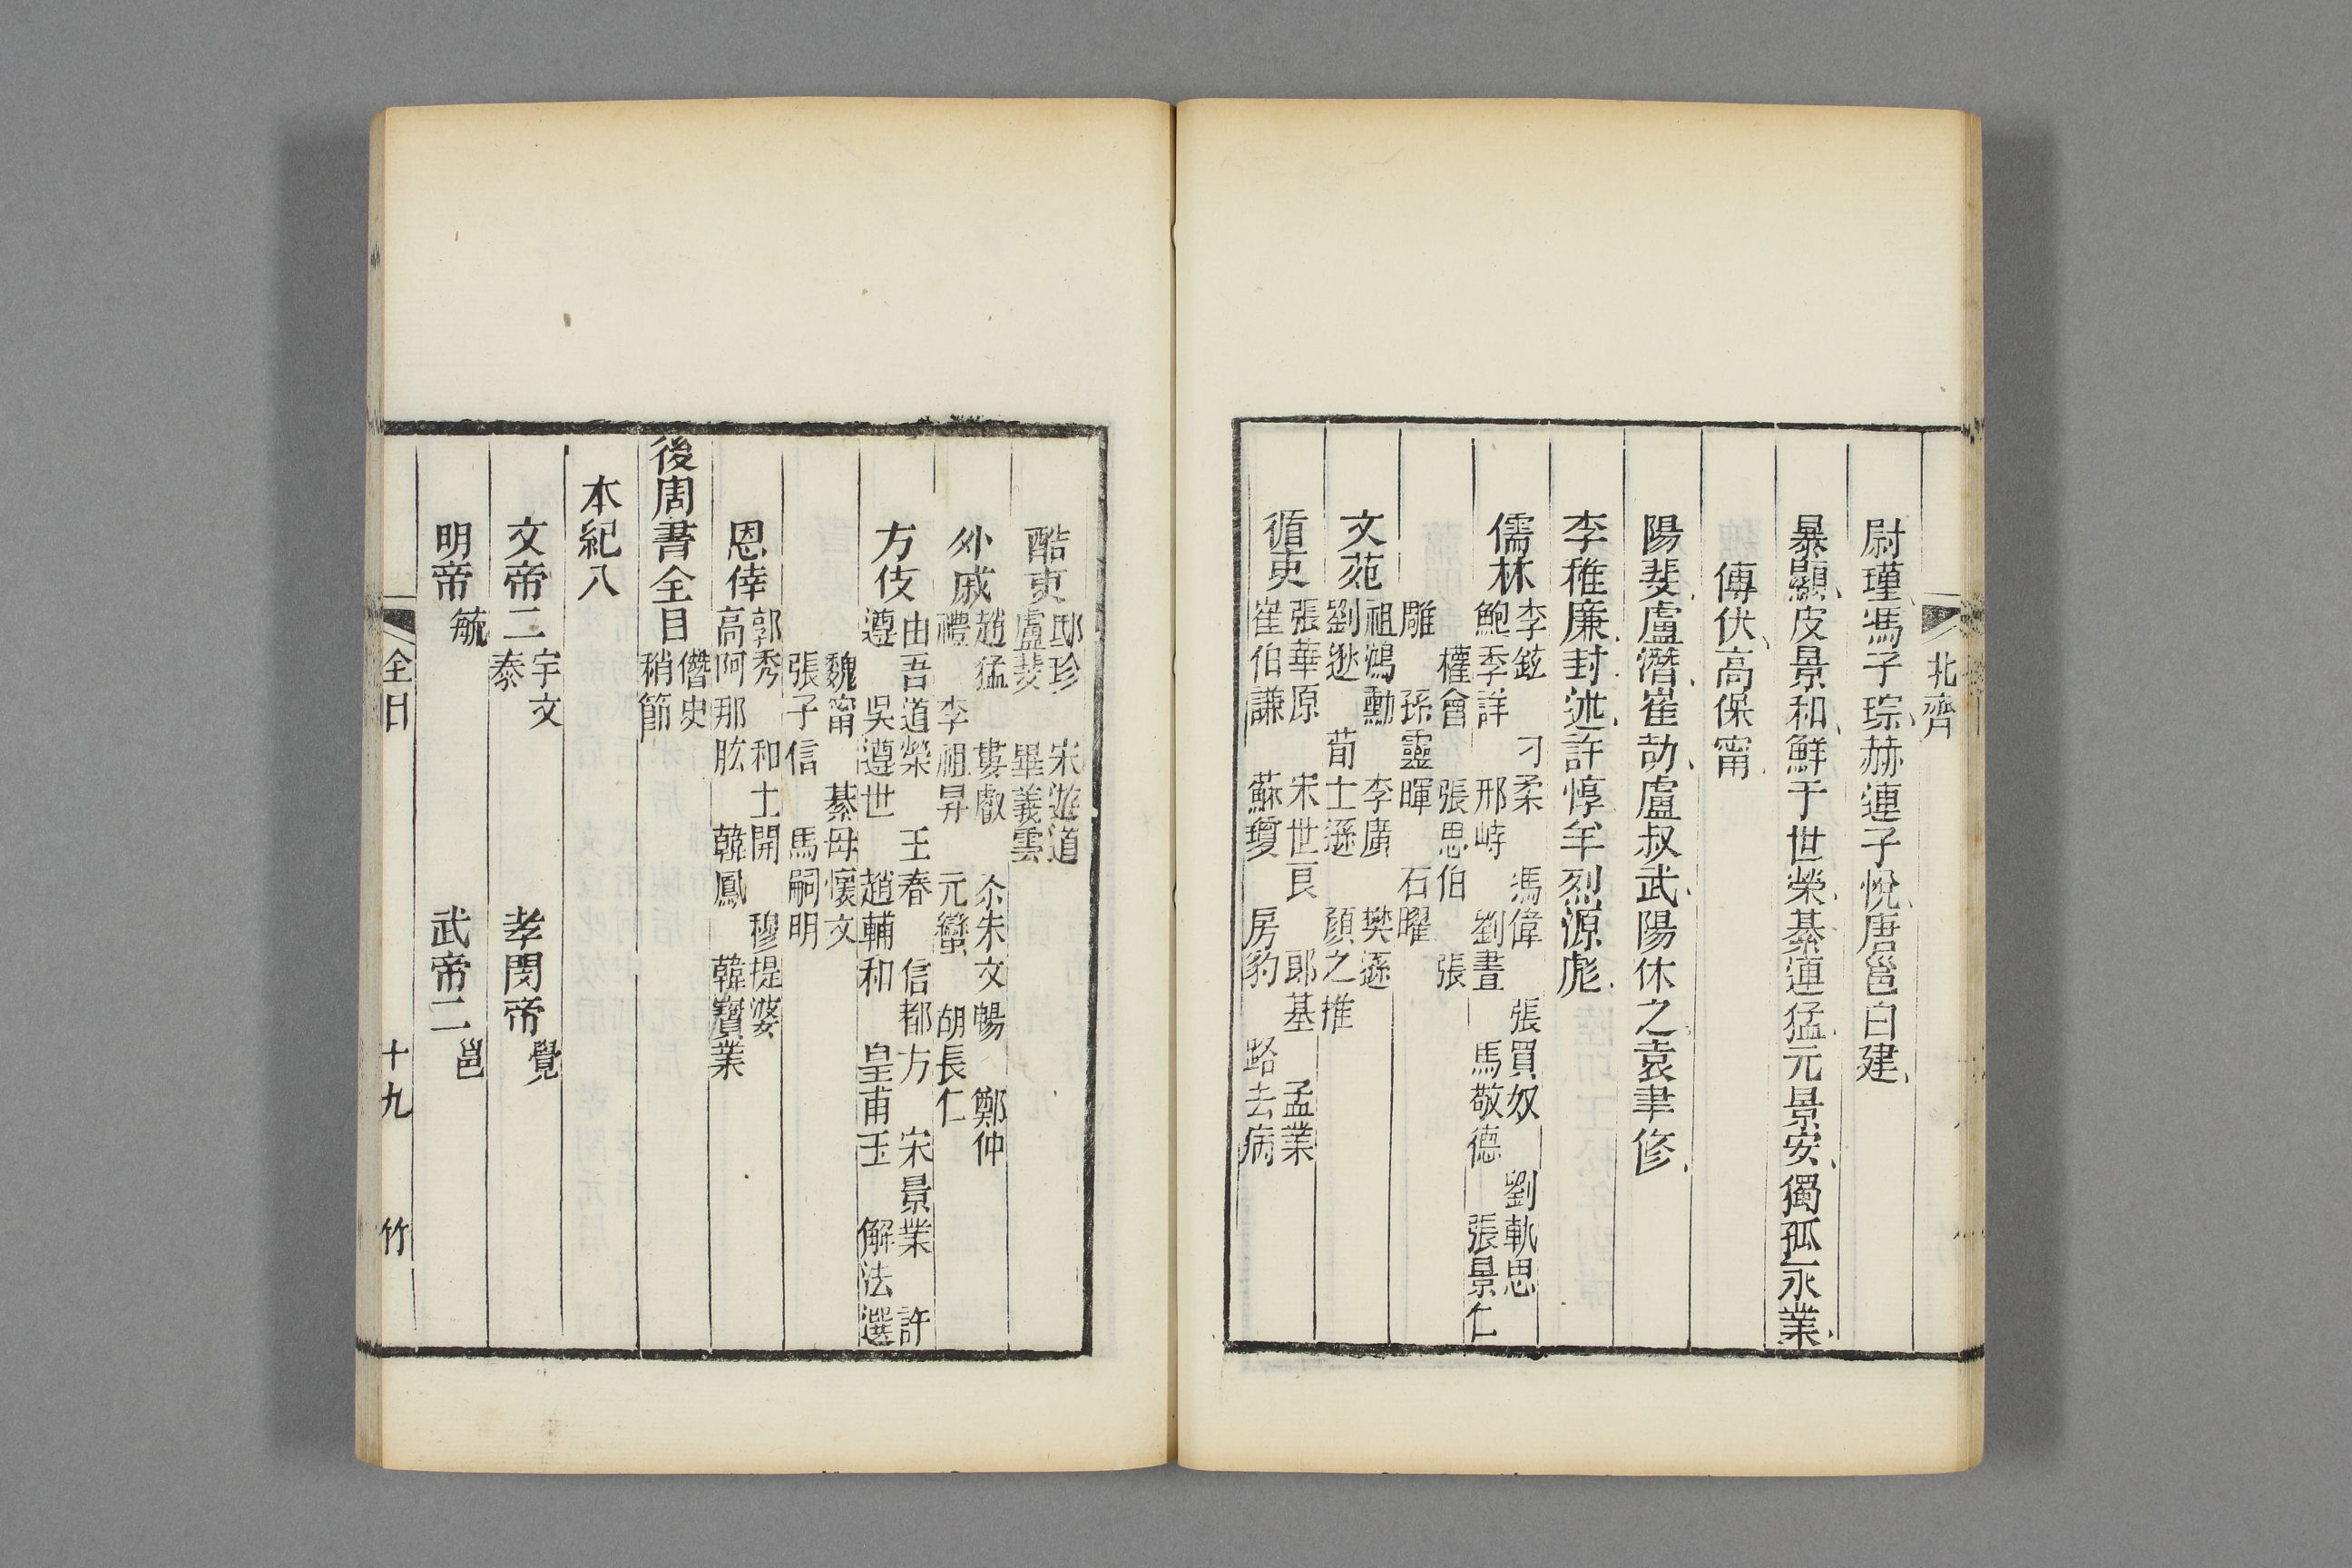 北齊
尉瑾、馮子琮、赫連子悅、唐邕白建、
暴顯、皮景和、鮮于世榮、綦連猛、元景安、獨孤永業、
傅伏、高保甯、
陽斐、盧潛、崔劼、盧叔武、陽休之、袁聿修、
李稚廉、封述、許惇羊烈源彪、
儒林
李鉉 刁柔 馮偉 張買奴 劉軌思
鮑季詳 邢峙 劉晝 馬敬德 張景仁
權會 張思伯 張
雕 孫靈暉 石曜
文苑
祖鴻勳 李廣 樊遜
劉逖 荀士遜 顏之推
循吏
張華原 宋世良 郎基 孟業
崔伯謙 蘇瓊 房豹 路去病
酷吏
邸珍 宋遊道
盧斐 畢義雲
外戚
趙猛 婁叡 尒朱文暢 鄭仲
禮 李祖昇 元蠻 胡長仁
方伎
由吾道榮 王春 信都方 宋景業 許
遵 吳遵世 趙輔和 皇甫玉 解法選
魏甯 綦母懷文
張子信 馬嗣明
恩倖
郭秀 和士開 穆提婆
高阿那肱 韓鳳 韓寶業
後周書全目
僭史
稍節
本紀八
文帝二 宇文
泰 孝閔帝 覺
明帝 毓 武帝二 邕
全目 十九 竹